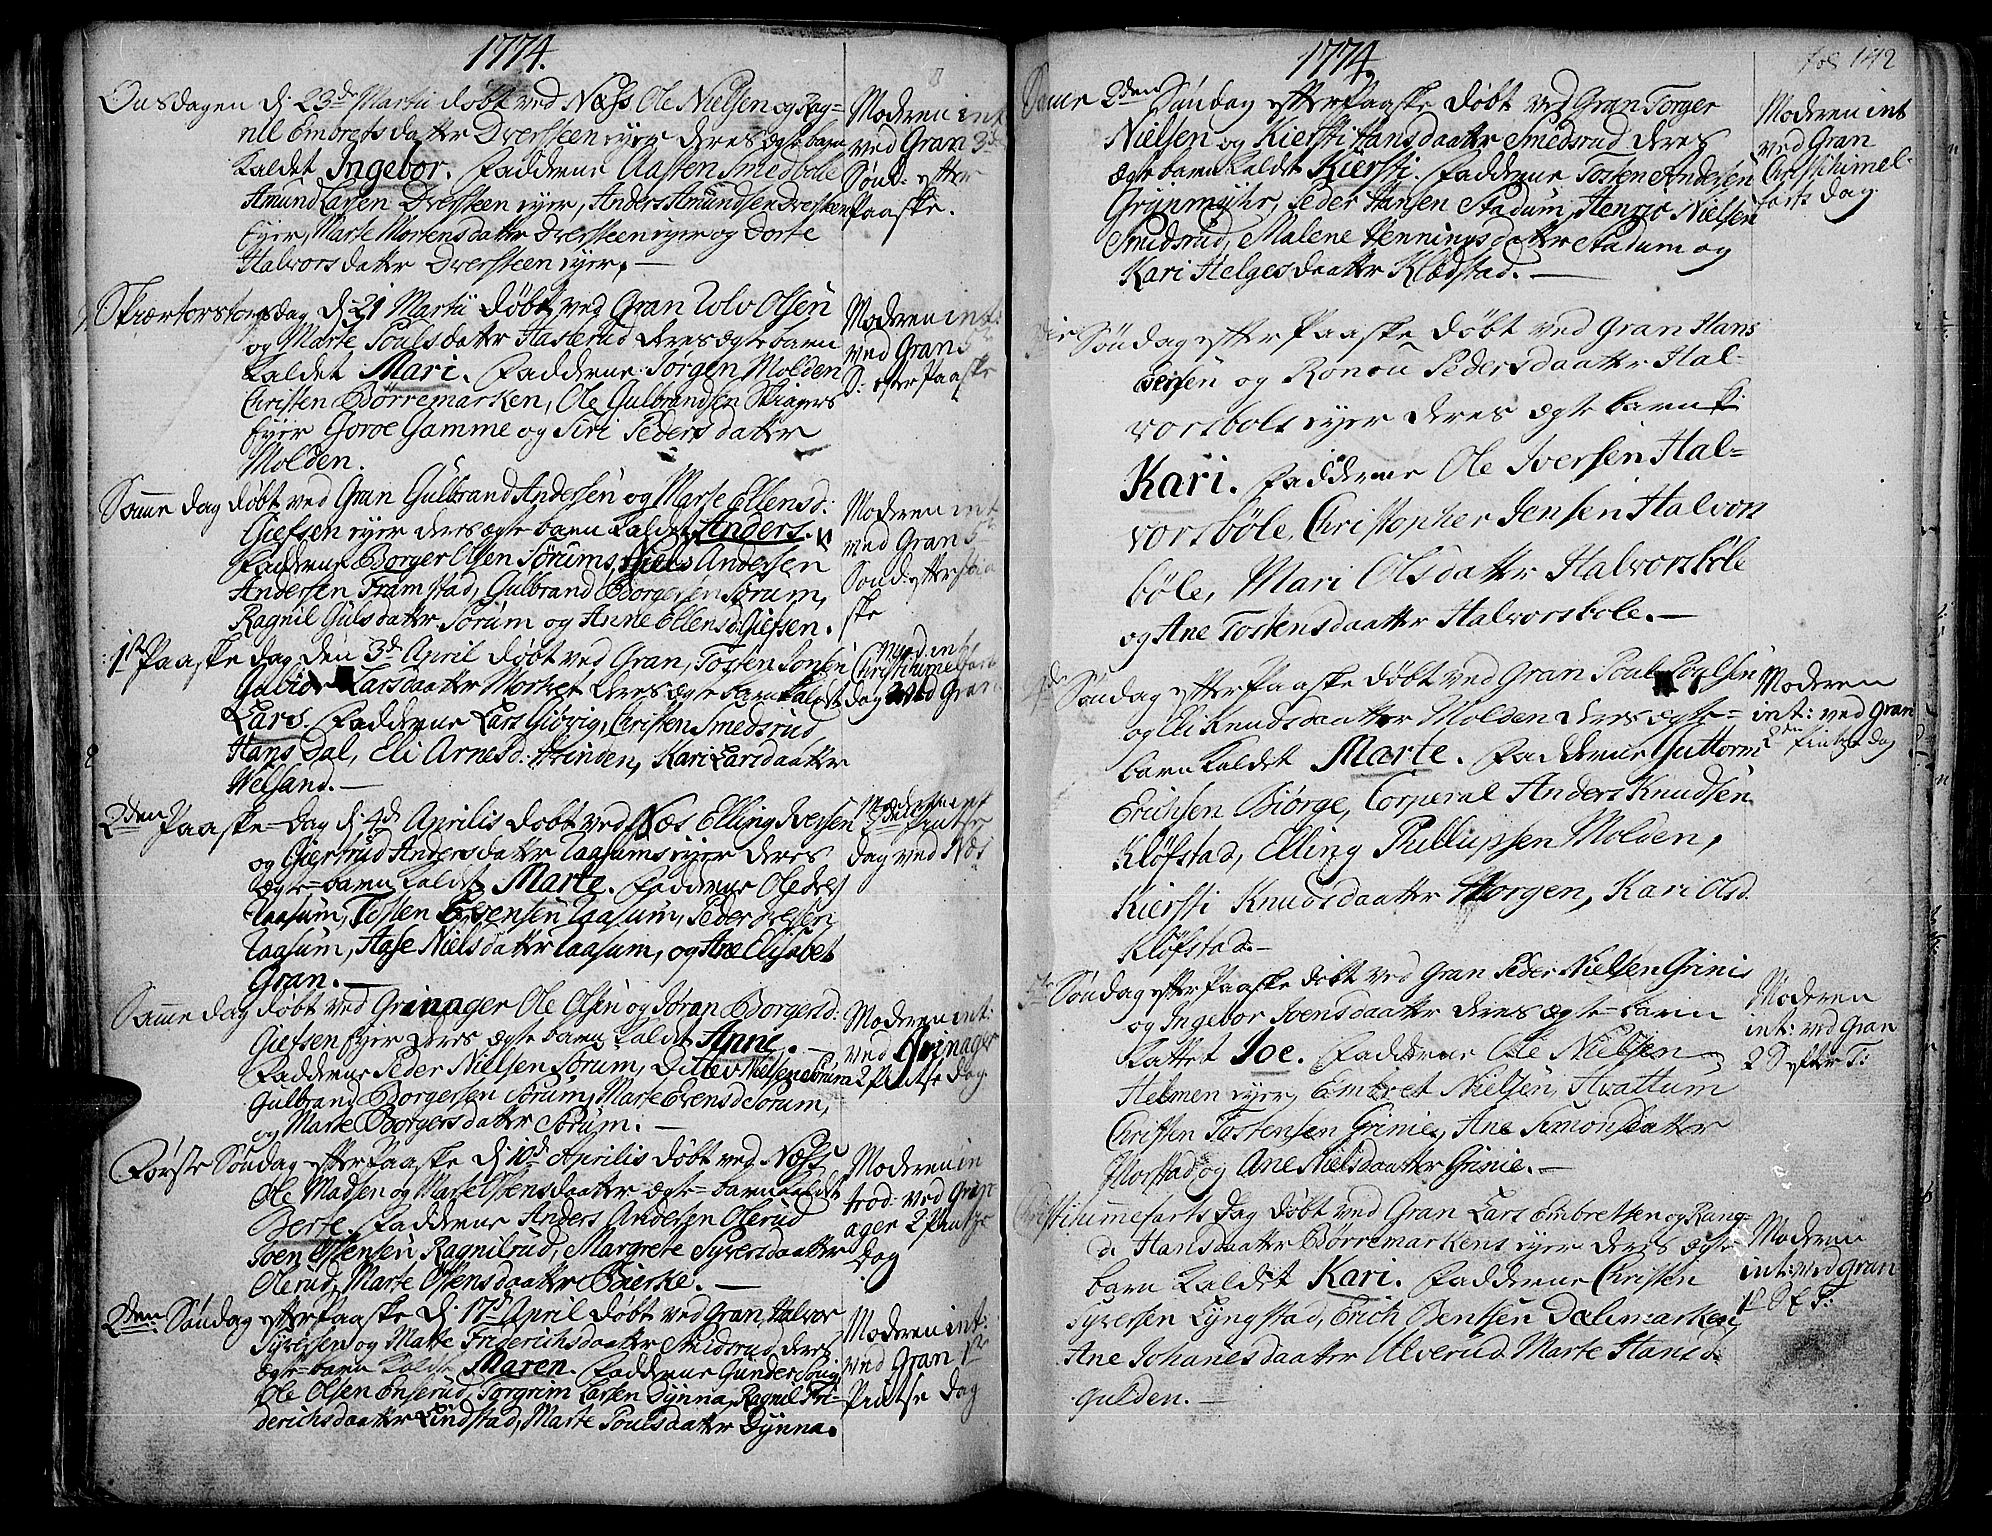 1774.
Onsdagen d. 23de Martii døbt ved Næss Ole Nielsen og Rag=
nil Embretsdatter Dversteen eyer deres ægte barn
kaldet Ingebor. Faddrene Aasten Smedsbøle
Amund Larsen Dversteen eyer, Anders Amundsen Dversteen
Eyer, Marte Mortensdatter Dversteen eyer og Dorte
Halvorsdatter Dversteen eyer. —
Moderen int
ved Gran 3de
Sønd: efter
Paaske.
Skiærtorstorsdag d. 21 Martii døbt ved Gran Tolv Olsen
og Marte Poulsdatter Haslerud deres ægte barn
kaldet Mari. Faddrene Jørgen Molden
Christen Børremarken, Ole Gulbrandsen Skiagers
Eyer Goroe Gamme og Siri Pedersdatter
Molden.
Moderen int:
ved Gran 5
S: efter Paaske
Samme dag døbt ved Gran Gulbrand Andersen og Marte Ellensd:
Giefsen eyer deres ægte barn kaldet Anders.
Faddrene Borger Olsen Sørums, Niels Andersen
Andersen Framstad, Gulbrand Borgersen Sørum,
Ragnil Gulsdatter Sørum og Anne Ellensd: Giefsen.
Moderen int
ved Gran 5
Sønd: efter Paa
ske
1ste Paaske dag den 3de April døbt ved Gran, Tosten Jonsen
Gubiør Larsdaatter Morket deres ægte barn kaldet
Lars. Faddrene Lars Giøvig, Christen Smedsrud
Hans Dal, Eli Arnesd: Hvinden, Kari Larsdaatter
Welsand. —
Mod. int
Christihimelfarts
dag ved Gran
2den Paaske=dag d. 4de Aprilis døbt ved Næs Elling Iversen
og Giertrud Andersdatter Taasums eyer deres
ægte=barn kaldet Marte. Faddrene Ole Ives
Taasum, Tosten Evensen Taasum, Peder Iversen
Taasum, Aase Nielsdatter Taasum, og Ane Elisabet
Gran. —
Moderen int
Pintse
dag ved Næs
Samme dag døbt ved Grinager Ole Olsen og Jøran Borgersd:
Giefsen Eyer deres ægte barn kaldet Anne. —
Faddrene Peder Nielsen Sørum, Ditlev Nielsen Sørum
Gulbrand Borgersen Sørum, Marte Evensd Sørum,
og Marte Borgersdatter Sørum. —
Moderen int:
ved Grinager
2 Pintse dag.
Første Søndag efter Paaske d. 10de Aprilis døbt ved Næss
Ole Madsen og Marte Ostensdaatter ægte=barn kaldet
Berte. Faddrene Anders Andersen Olerud
Joen Ostensen Ragnilrud, Margrete Syversdaatter
Olerud, Marte Ostensdaatter Bierke. —
Moderen in
trod: ved Grin
ager 2 Pintse
Dag
2den Søndag efter Paaske d. 17de April døbt ved Gran, Halvor
Syversen og Matte Friderichsdaatter Skidsrud, deres
ægte=barn kaldet Maren. Faddrene Gunder
Ole Olsen Enserud, Torgrim Larsen Dynna, Ragnil Fri=
derichsdaatter Lindstad, Marte Poulsdaatter Dynna.
Moderen int:
ved Gran 1ste
Pintse dag
1774.
fol 142
Samme 2den Søndag efter Paaske døbt ved Gran Torger
Nielsen og Kiersti Hansdaatter Smedsrud deres
ægte barn kaldet Kiersti. Faddrene Tosten Andersen
Grynmyhr, Peder Hansen Stadum, Henric Nielsen
Smedsrud, Malene Henningsdatter Stadum og
Kari Helgesdaatter Klædstad. —
Moderen int
ved Gran
Christihimel-
farts dag.
Søndag efter Paaske døbt ved Gran Hans
Iversen og Ronou Pedersdaatter Hal-
vorsbøls eyer deres ægte barn k:
Kari. Faddrene Ole Iversen Hal=
vorsbøle, Christopher Jensen Halvors
bøle, Mari Olsdatter Halvorsbøle
og Ane Tostensdaatter Halvorsbole. —
Søndag efter Paaske døbt ved Gran Poul Poulsen
og Eli Knudsdaatter Molden deres ægte=
barn kaldet Marte. Faddrene Guttorm
Erichsen Biørge, Corperal Anders Knudsen
Kløfstad, Elling Phillupsen Molden,
Kiersti Knudsdaatter Horgen, Kari Olsd.
Kløfstad. —
Moderen
int: ved Gran
2den Pintse dag
Søndag efter Paaske døbt ved Gran Peder Nielsen Grinis
og Ingebor Joensdaatter deres ægte=barn
kallet Joe. Faddrene Ole Nielsen
Helmen eyer, Embret Nielsen, Hvattum
Christen Tostensen Grinie, Ane Simonsdatter
Morstad og Ane Nielsdaatter Grinie. —
Moderen
int: ved Gran
2 S efter T:
Christihimmefarts dag døbt ved Gran Lars Embretsen og Rang=
d. Hansdaatter Børremarkens eyer deres ægte
barn kaldet Kari. Faddrene Christen
Syversen Lyngstad, Erich Bentsen Dælemarken,
Ane Johanesdaatter Ulverud Marte Hansd.
Gulden. —
Moderen
int: ved Gran
1ste S e T: